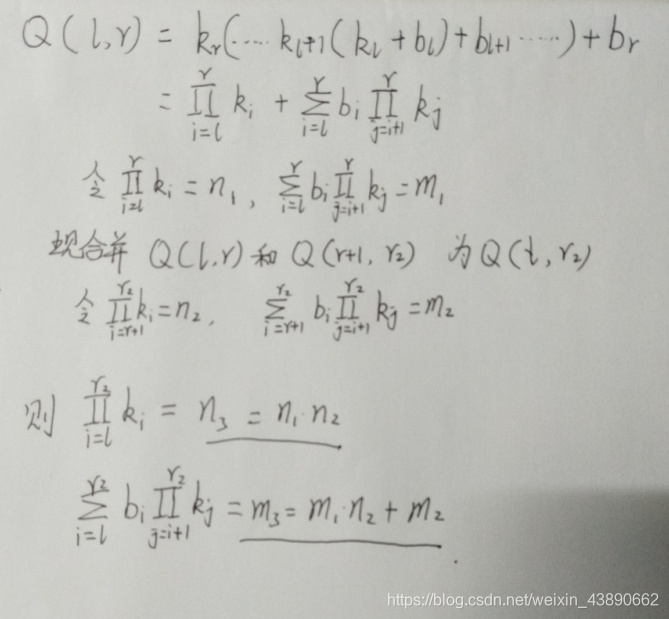 Q(l,r) = kᵣ(⋯ kₗ₊₁(kₗ + bₗ) + bₗ₊₁ ⋯⋯) + bᵣ
= ∏_{i=l}^{r} kᵢ + ∑_{i=l}^{r} bᵢ ∏_{j=i+1}^{r} kⱼ
令 ∏_{i=l}^{r} kᵢ = n₁, ∑_{i=l}^{r} bᵢ ∏_{j=i+1}^{r} kⱼ = m₁
现合并 Q(l,r) 和 Q(r+1, r₂) 为 Q(l, r₂)
令 ∏_{i=r+1}^{r₂} kᵢ = n₂, ∑_{i=r+1}^{r₂} bᵢ ∏_{j=i+1}^{r₂} kⱼ = m₂
则 ∏_{i=l}^{r₂} kᵢ = n₃ = n₁·n₂
∑_{i=l}^{r₂} bᵢ ∏_{j=i+1}^{r₂} kⱼ = m₃ = m₁·n₂ + m₂.
https://blog.csdn.net/weixin_43890662